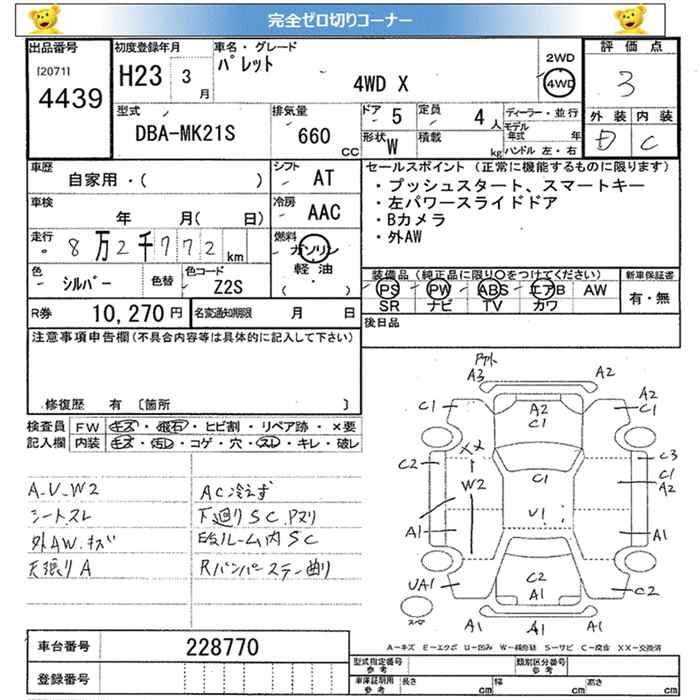 完全ゼロ切りコーナー
出品番号 初度登録年月 車名・グレード 評価点
[2071] 4439 H23 3 月 パレット 4WD X 2WD 4WD 3
型式 排気量 ドア 5 定員 4 人 ディーラー・並行 外装 内装
DBA-MK21S 660 CC 形状 W 積載 kg モデル年式 年 ハンドル 左・右 D C
車歴 自家用・( ) シフト AT
車検 年 月( 日) 冷房 AAC
走行 8万2千772 km 燃料 ガソリン 軽油 ( ・ )
色 シルバー 色替 色コード Z2S
R券 10,270 円 名変通知期限 月 日
セールスポイント(正常に機能するものに限ります)
・プッシュスタート、スマートキー
・左パワースライドドア
・Bカメラ
・外AW
装備品(純正品に限り○をつけてください) 新車保証書
PS PW ABS エアB AW 有・無
SR ナビ TV カワ
後日品
注意事項申告欄(不具合内容等は具体的に記入して下さい)
修復歴 有 〔箇所 〕
検査員 FW キズ・飛石・ヒビ割・リペア跡・×要
記入欄 内装 キズ・汚レ・コゲ・穴・スレ・キレ・破レ
A-U-W2 AC冷えず
シートスレ 下廻りSC Pヌリ
外AW.キズ E/ルーム内SC
天張りA Rバンパーステー曲り
A3 A2
C1 A2 C1 A2 C1
C2 メメ C1 C3 C1 A2
W2 U1
A1 A1
UA1 C2 A1 C2
スペア A1 A1 A1
A-キズ E-エクボ U-凹み W-補修跡 S-サビ C-腐食 XX-交換済
車台番号 228770
登録番号
型式指定番号 参考 類別区分番号 参考
車庫証明用 参考 長さ cm 幅 cm 高さ cm